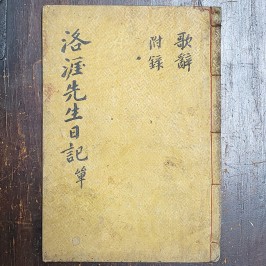 洛涯先生日記 單
歌辭
附錄